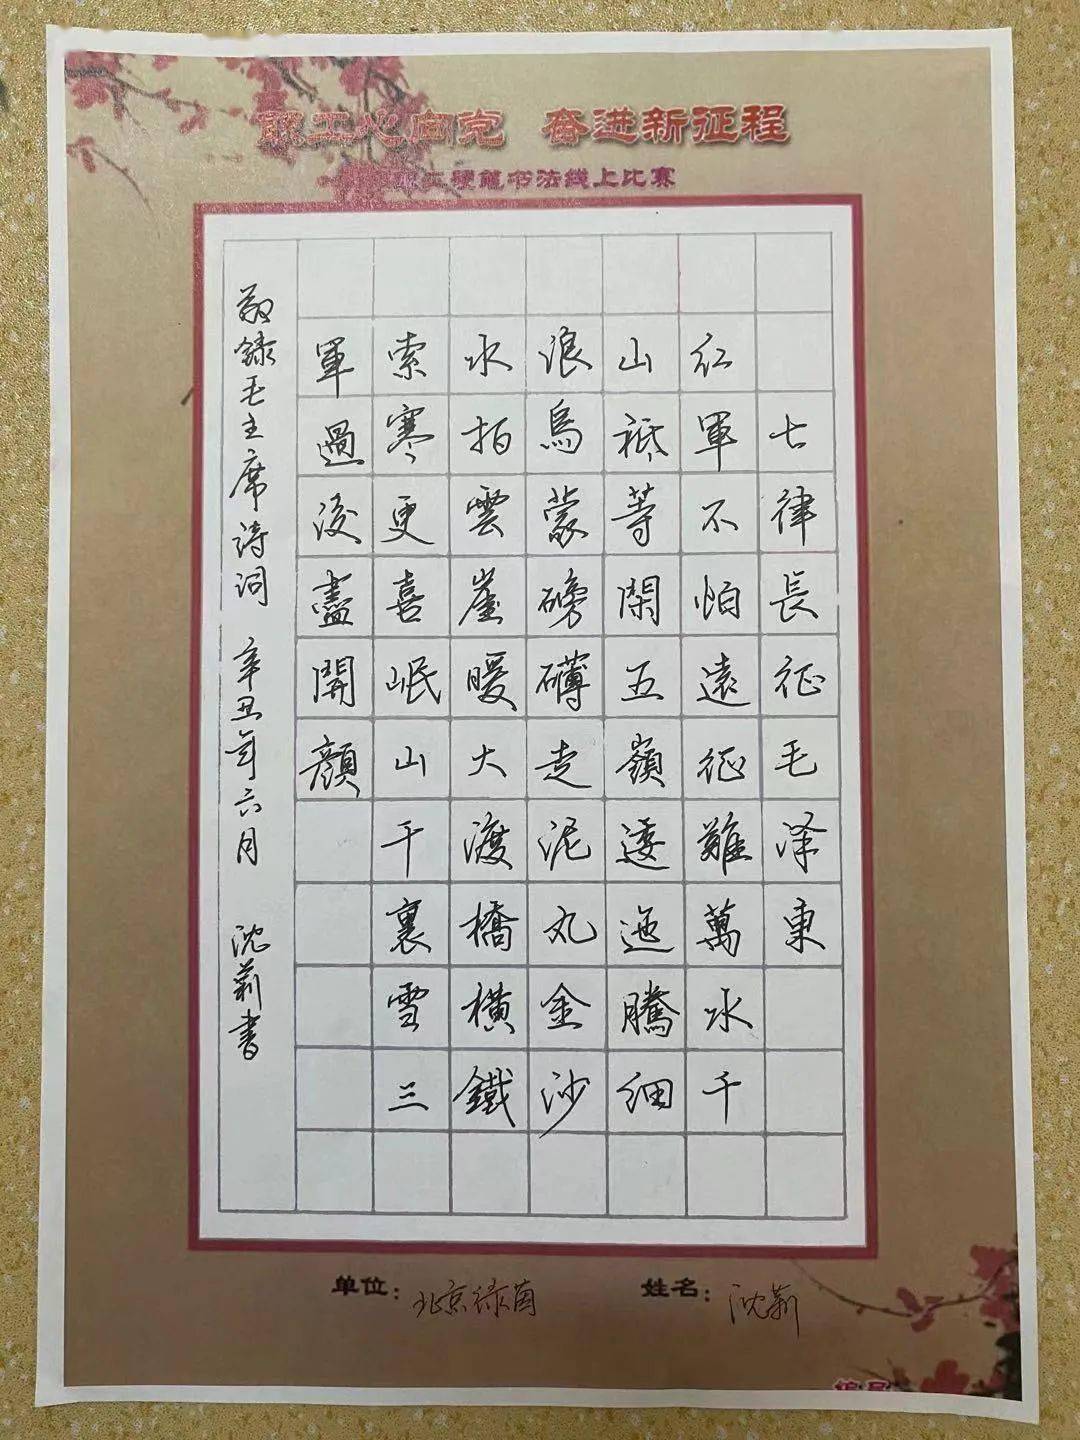 职工心向党 奋进新征程
职工硬笔书法线上比赛
七律長征毛泽東
红軍不怕遠征難萬水千
山祗等閑五嶺逶迤騰細
浪烏蒙磅礴走泥丸金沙
水拍雲崖暖大渡橋横鐵
索寒更喜岷山千裏雪三
軍過後盡開顔
敬錄毛主席诗词 辛丑年六月 沈莉書
单位：北京绿茵 姓名：沈莉